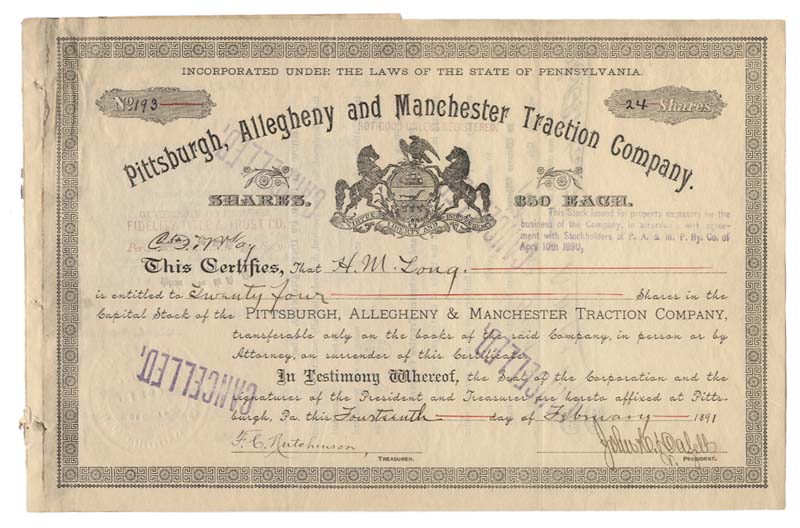 INCORPORATED UNDER THE LAWS OF THE STATE OF PENNSYLVANIA.
No 193
24 Shares
Pittsburgh, Allegheny and Manchester Traction Company.
NOT GOOD UNLESS REGISTERED.
CANCELLED,
SHARES.
$50 EACH.
VIRTUE LIBERTY AND INDEPENDENCE
This Stock issued for property necessary for the
business of the Company, in accordance with agree-
ment with Stockholders of P. A. & M. P. Ry. Co. of
April 10th 1890,
This Certifies, That H. M. Long.
is entitled to Twenty Four Shares in the
Capital Stock of the PITTSBURGH, ALLEGHENY & MANCHESTER TRACTION COMPANY,
transferable only on the books of the said Company, in person or by
Attorney, on surrender of this Certificate.
CANCELLED,
CANCELLED,
In Testimony Whereof, the Seal of the Corporation and the
signatures of the President and Treasurer are hereto affixed at Pitts-
burgh, Pa. this Fourteenth day of February 1891
F. C. Hutchinson,
TREASURER.
PRESIDENT.